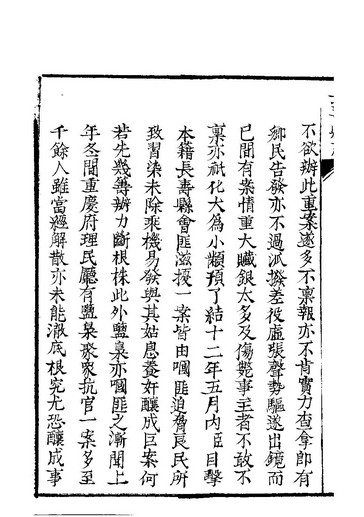 不欲辦此重案遂多不稟報亦不肯實力查拿即有
鄉民告發亦不過派撥差役虛張聲勢驅逐出鏡而
已間有案情重大贓銀太多及傷斃事主者不敢不
稟亦祇化大為小顢預了結十二年五月內臣目擊
本籍長壽縣會匪滋擾一案皆由嘓匪迫脅良民所
致習染未除乘機易發與其姑息養奸釀成巨案何
若先幾籌辦力斷根株此外鹽梟亦嘓匪之漸聞上
年冬間重慶府理民廳有鹽梟聚眾抗官一案多至
千餘人雖當經解散亦未能澈底根究尤恐釀成事